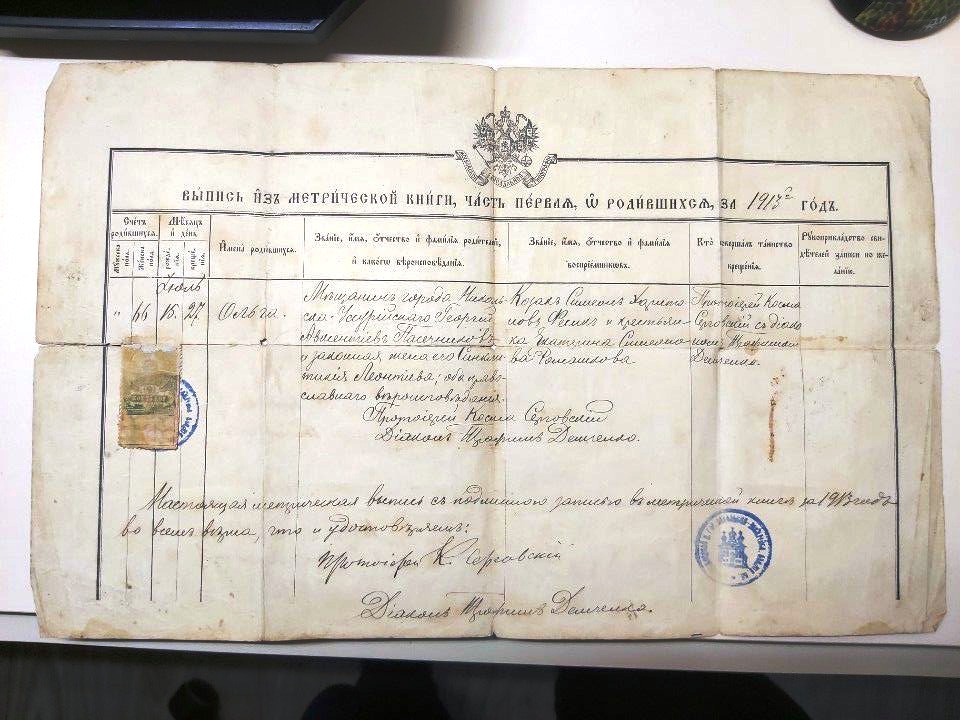 ВЫПИСЬ ИЗЪ МЕТРИЧЕСКОЙ КНИГИ, ЧАСТЬ ПЕРВАЯ, Ѿ РОДИВШИХСЯ, ЗА 1913 ГОДЪ.
Счетъ родившихся.
Мужеска пола.
Женска пола.
Мѣсяцъ и день
рожденія.
крещенія.
Имена родившихся.
Званіе, имя, отчество и фамилія родителей,
и какого вѣроисповѣданія.
Званіе, имя, отчество и фамилія
воспріемниковъ.
Кто совершалъ таинство
крещенія.
Рукоприкладство сви-
дѣтелей записи по же-
ланію.
Іюль
" 66 15. 27.
Ольга.
Мѣщанинъ города Николь-
ска-Уссурійскаго Георгій
Авксентіевъ Пасечниковъ
и законная жена его Синкли-
тикія Леонтіева; оба право-
славнаго вѣроисповѣданія.
Протоіерей Косма
Діаконъ Трофимъ Демченко.
Козакъ Симеонъ Харито-
новъ и крестьян-
ка Екатерина Симеоно-
ва Ромашкова
Протоіерей Косма
съ діако-
номъ Трофимомъ
Демченко.
Настоящая метрическая выпись съ подлинною записью въ метрической книгѣ за 1913 годъ
во всемъ вѣрна, что и удостовѣряемъ:
Протоіерей К.
Діаконъ Трофимъ Демченко.